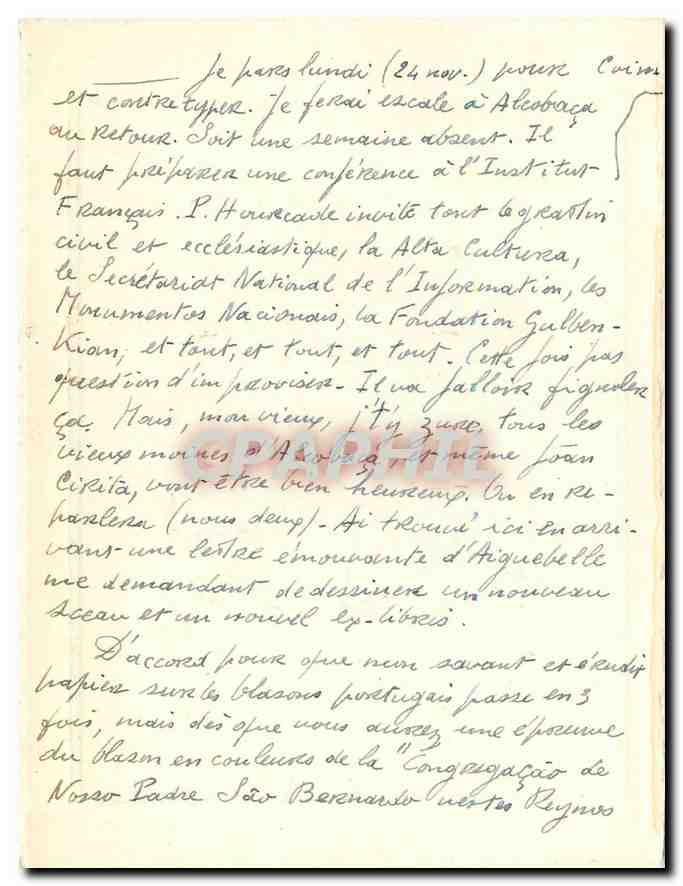 Je pars lundi (24 nov.) pour Coim
et contretyper. Je ferai escale à Alcobaça
au retour. Soit une semaine absent. Il
faut préparer une conférence à l'Institut
Français. P. Hourcade invite tout le gratin
civil et ecclésiastique, la Alta Cultura,
le Secrétariat National de l'Information, les
Monumentos Nacionais, la Fondation Gulben-
Kian, et tout, et tout, et tout. Cette fois pas
question d'improviser. Il va falloir fignoler
ça. Mais, mon vieux, j't'y jure, tous les
vieux moines d'Alcobaça, et même Joan
Cirita, vont être bien heureux. On en re-
parlera (nous deux). Ai trouvé ici en arri-
vant une lettre émouvante d'Aiguebelle
me demandant de dessiner un nouveau
sceau et un nouvel ex-libris.
D'accord pour que mon savant et érudit
papier sur les blasons portugais passe en 3
fois, mais dès que vous aurez une épreuve
du blason en couleurs de la "Congregação de
Nosso Padre São Bernardo nestes Reynos
CPAPHIL